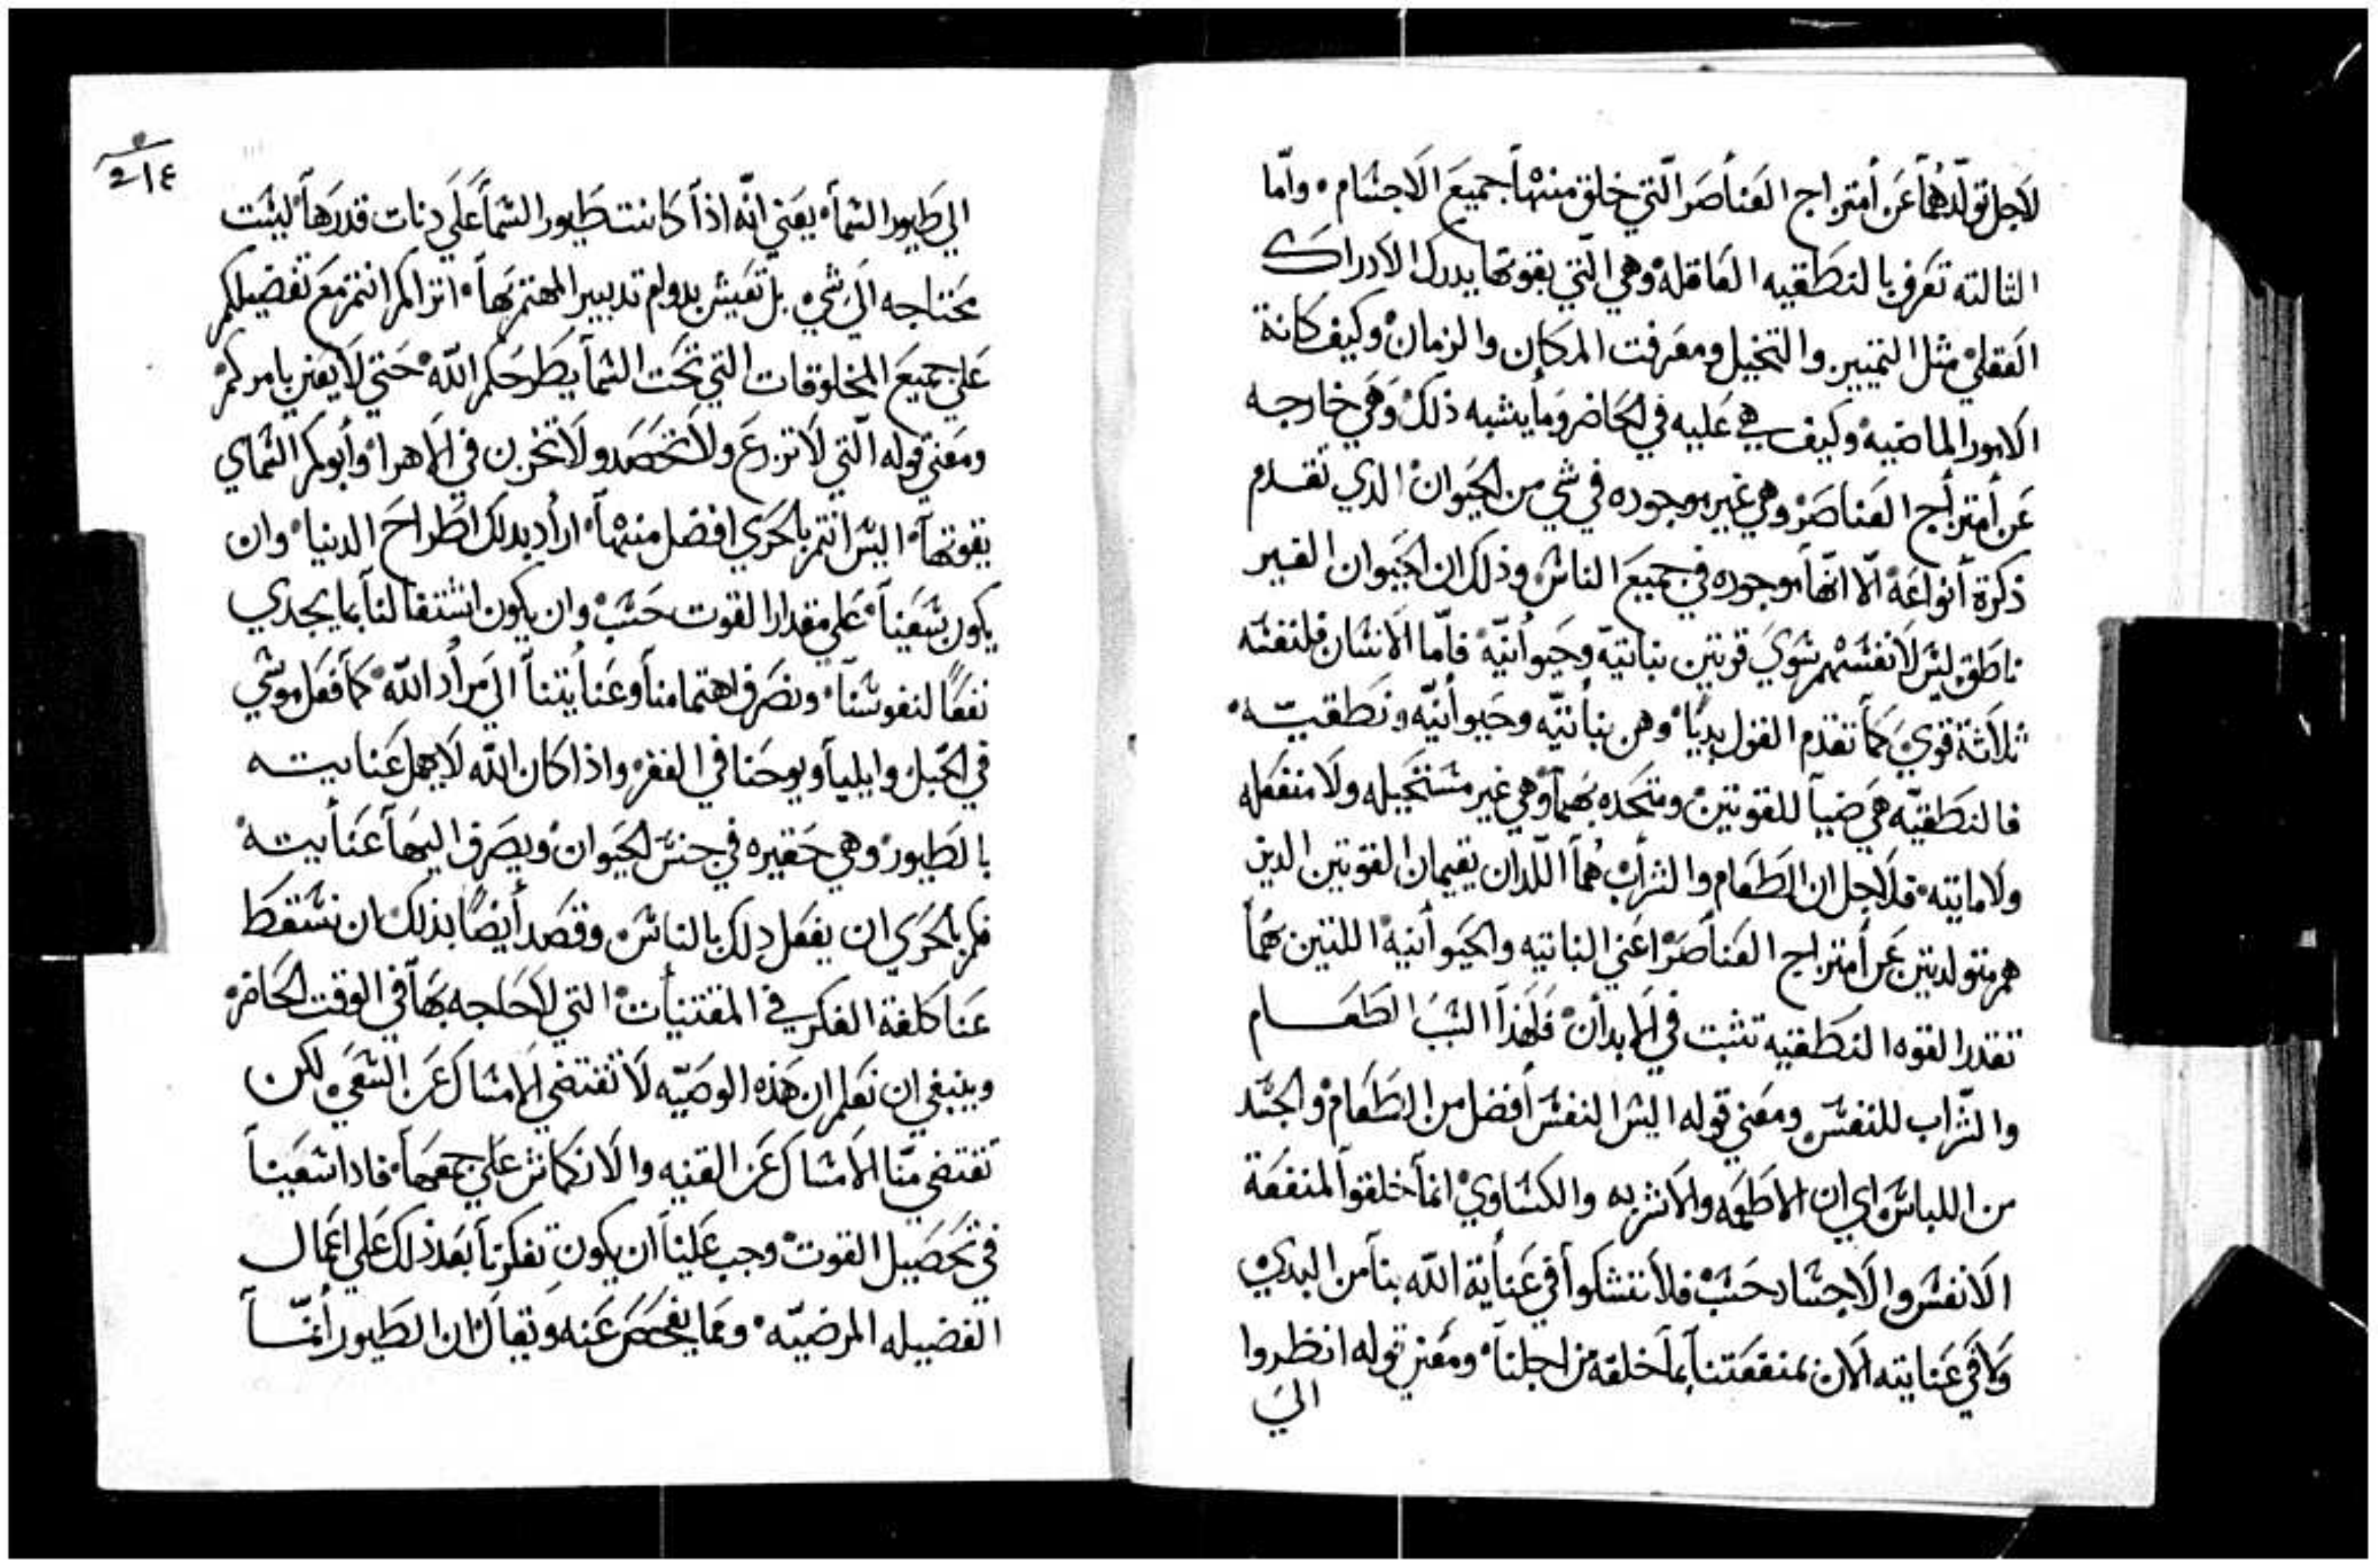 لاجل تولدهما عن أمتزاج العناصر التي خلق منها جميع الاجسام • وامّا
الثالثه تعرف بالنطقيه العاقلة وهي التي بقوتها يدرك الادراك
العقلي مثل التمييز والتخيل ومعرفت المكان والزمان وكيف كانة
الامور الماضيه وكيف هي عليه في الحاضر وما يشبه ذلك وهي خارجه
عن أمتزاج العناصر وهي غير موجوده في شي من الحيوان الدي تقدم
ذكرة أنواعة الا انها موجوده في جميع الناس وذلك ان الحيوان الغير
ناطق ليس لانفسهم سوي قوتين نباتيّه وحيوانيّة فامّا الانسان فلنفسه
ثلاثة قوي كما تقدم القول بديًا وهن نباتيّه وحيوانيّه ونطقيّه •
فالنطقيّه هي ضيآ للقوتين ومتحده بهما وهي غير مستحيله ولا منفعله
ولا مايته • فلاجل ان الطعام والشراب هما اللدان يقيمان القوتين الدين
هم متولدتين عن أمتزاج العناصر اعني النباتيه والحيوانية اللتين بهما
تقدر القوه النطقيه تثبت في الابدان فلهذا السبب الطعام
والشراب للنفس ومعني قوله اليس النفس أفضل من الطعام والجسد
من اللباس اي ان الاطعمه والاشربه والكساوي انما خلقوا لمنفعة
الانفس والاجساد حسب فلا تشكوا في عناية الله بنا من البدي
ولا في عنايته الان بمنفعتنا بما خلقه من اجلنا • ومعني قوله انظروا
الي
٢١٤
الي طيور السمآ • يعني انّه اذا كانت طيور السمآ علي دنات قدرها ليست
محتاجه الي شي بل تعيش بدوام تدبير المهتم بها • اتراكم انتم مع تفضيلكم
علي جميع المخلوقات التي تحت السمآ يطرحكم الله حتي لا يعني بامركم
ومعني قوله التي لا تزرع ولا تحصد ولا تخزن في الاهرا وأبوكم السماي
يقوتها • اليس انتم بالحري افضل منها • اراد بدلك اطراح الدنيا • وان
يكون سعينا علي مقدار القوت حسب وان يكون اشتغالنا بما يجدي
نفعًا لنفوسنا • ونصرف اهتمامنا وعنايتنا الي مراد الله كما فعل موسي
في الجبل وايليا ويوحنا في القفر واذا كان الله لا يهمل عنايته
بالطيور وهي حقيره في جنس الحيوان ويصرف اليها عنايته
فكم بالحري ان يفعل دلك بالناس وقصد أيضًا بذلك ان نسقط
عنا كلفة الفكر في المقتنيات التي لا حاجه بها في الوقت الحاضر
وينبغي ان نعلم ان هذه الوصيّه لا تقتضي الامساك عن السعي لكن
تقتضي منّا الامساك عن القنيه والانكماش علي جمعها • فادا سعينا
في تحصيل القوت وجب علينا ان يكون تفكرنا بعد ذلك علي اعمال
الفضيله المرضيّه • ومما يفحص عنه ويقال ان الطيور أنمّا